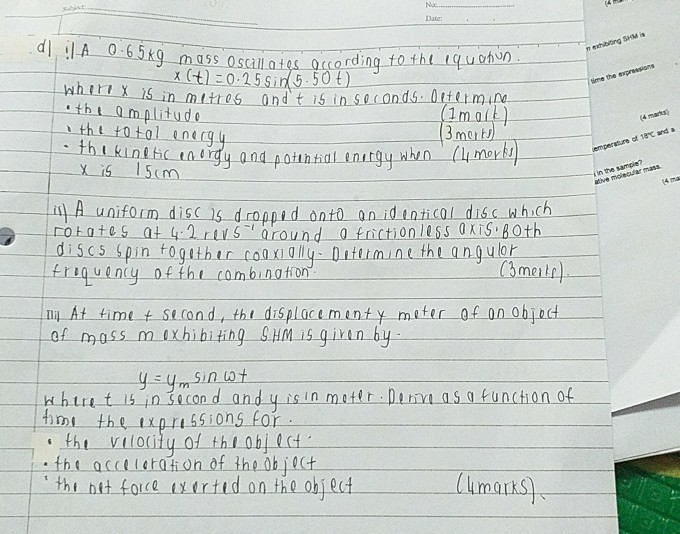 Subject:
No:
Date:
d) i) A 0.65kg mass oscillates according to the equation.
x(t)=0.25sin(5.50t)
where x is in metres and t is in seconds. Determine
• the amplitude (1 mark)
• the total energy (3 marks)
- the kinetic energy and potential energy when (4 marks)
x is 15cm
ii) A uniform disc is dropped onto an identical disc which
rotates at 4.2 rev s⁻¹ around a frictionless axis. Both
discs spin together coaxially. Determine the angular
frequency of the combination. (3 marks).
iii) At time t second, the displacement y meter of an object
of mass m exhibiting SHM is given by -
y = yₘ sin ωt
where t is in second and y is in meter. Derive as a function of
time the expressions for.
• the velocity of the object.
• the acceleration of the object
• the net force exerted on the object (4 marks).
n exhibiting SHM is
time the expressions
(4 marks)
temperature of 18°C and a
in the sample?
ative molecular mass.
(4 ma